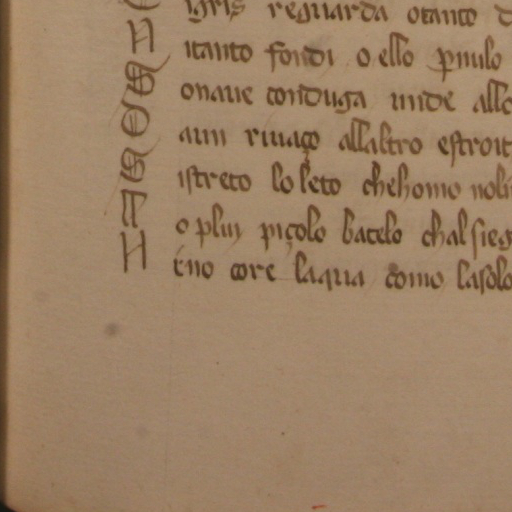 ygris reguarda otanto d
N itanto fondi o ello pmulo
S onaue conduga unde allo
O aun riuaço allaltro estroit
S istreto lo leto chehomo noli
N o plui piçolo batelo chal sieg
N eno core laqua como lasolo